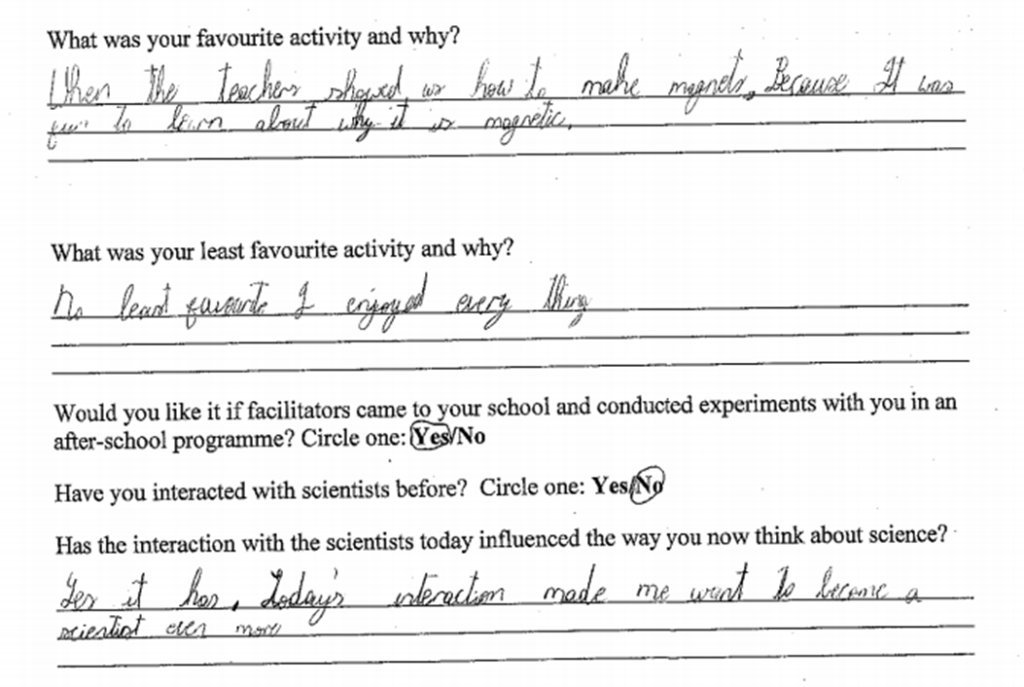 What was your favourite activity and why?
When the teachers showed us how to make magnets, Because It was
fun to learn about why it is magnetic,
What was your least favourite activity and why?
No least favourite I enjoyed every thing
Would you like it if facilitators came to your school and conducted experiments with you in an
after-school programme? Circle one: Yes/No
Have you interacted with scientists before? Circle one: Yes/No
Has the interaction with the scientists today influenced the way you now think about science?
Yes it has, Today's interaction made me want to become a
scientist even more